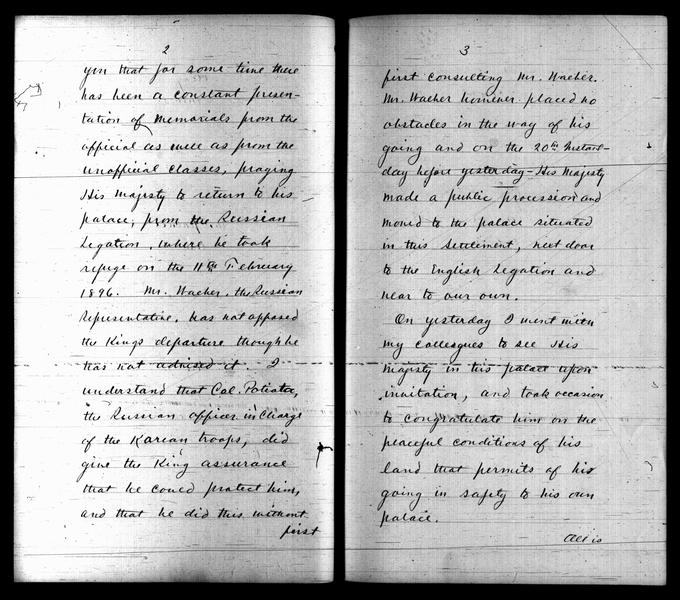 2
you that for some time there
has been a constant presen-
tation of memorials from the
official as well as from the
unofficial classes, praying
His Majesty to return to his
palace, from the Russian
Legation, where he took
refuge on the 11th February
1896. Mr. Waeber, the Russian
Representative, has not opposed
the Kings departure though he
has not advised it. I
understand that Col. Potiata,
the Russian officer in charge
of the Korean troops, did
give the King assurance
that he could protect him,
and that he did this without
first
3
first consulting Mr. Waeber.
Mr. Waeber however placed no
obstacles in the way of his
going and on the 20th instant-
day before yesterday-His Majesty
made a public procession and
moved to the palace situated
in this Settlement, next door
to the English Legation and
near to our own.
On yesterday I went with
my colleagues to see His
Majesty in his palace upon
invitation, and took occasion
to congratulate him on the
peaceful conditions of his
land that permits of his
going in safety to his own
palace.
All is